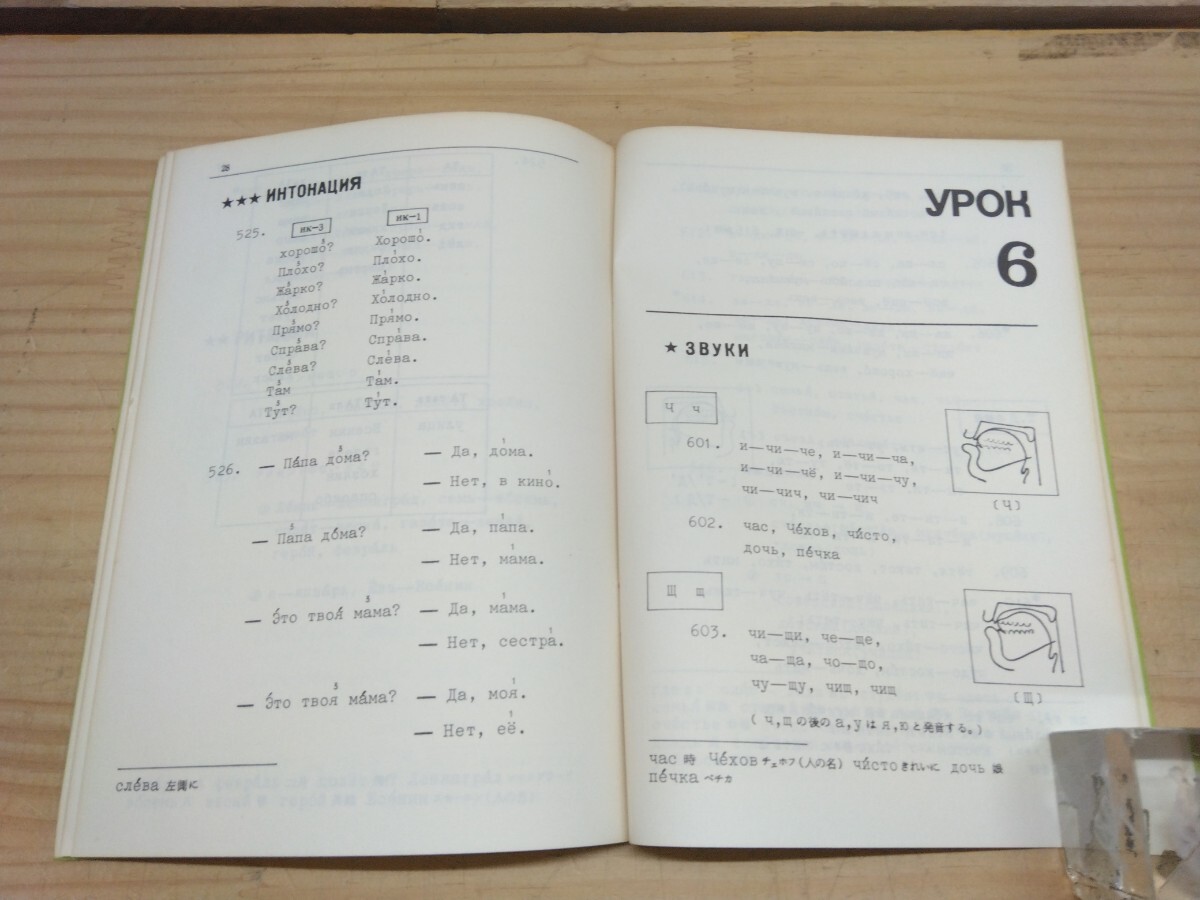 28
★★★ ИНТОНАЦИЯ
ик-3 ик-1
525. хорошо́? Хорошо́.
Пло́хо? Пло́хо.
Жа́рко? Жа́рко.
Хо́лодно? Хо́лодно.
Пря́мо? Пря́мо.
Спра́ва? Спра́ва.
Сле́ва? Сле́ва.
Там Там.
Тут? Тут.
526. — Па́па до́ма? — Да, до́ма.
— Нет, в кино́.
— Папа до́ма? — Да, па́па.
— Нет, ма́ма.
— Э́то твоя́ мама? — Да, ма́ма.
— Нет, сестра́.
— Э́то твоя ма́ма? — Да, моя́.
— Нет, её.
сле́ва 左側に
УРОК
6
★ ЗВУКИ
Ч ч
601. и—чи—че, и—чи—ча,
и—чи—чё, и—чи—чу,
чи—чич, чи—чич
(Ч)
602. час, Че́хов, чи́сто,
дочь, пе́чка
Щ щ
603. чи—щи, че—ще,
ча—ща, чо—що,
чу—щу, чищ, чищ
(Щ)
(ч,щの後のа,уはя,юと発音する。)
час 時 Че́хов チェホフ(人の名) чи́сто きれいに дочь 娘
пе́чка ペチカ